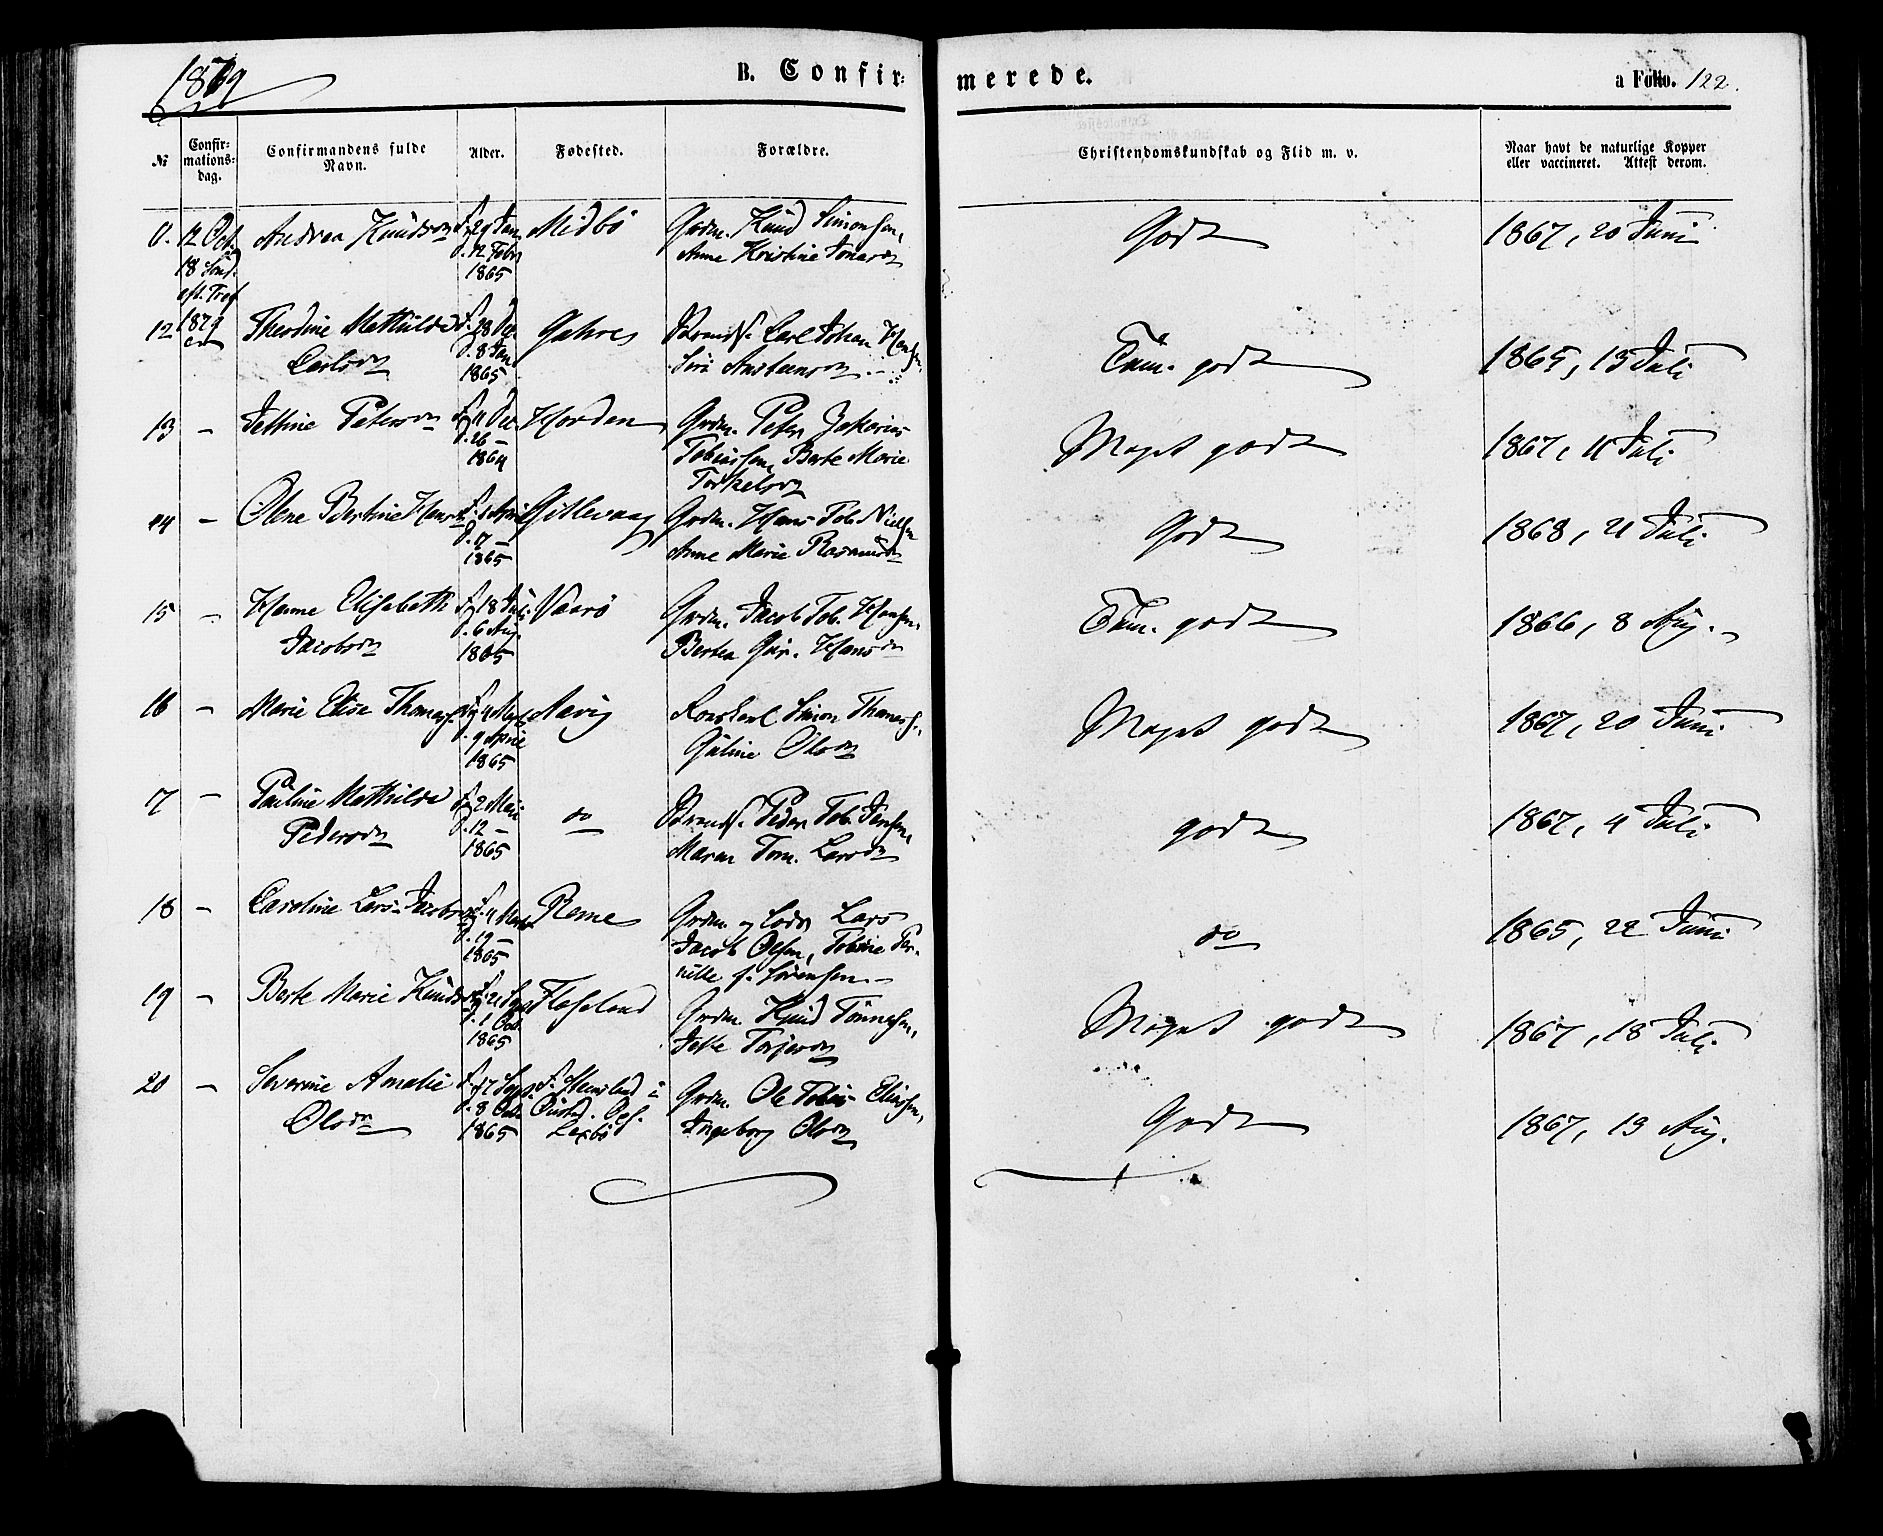 1879
B. Confir-
merede.
a Folio. 122.
№
Confir-
mations-
dag.
Confirmandens fulde
Navn.
Alder.
Fødested.
Forældre.
Christendomskundskab og Flid m. v.
Naar havt de naturlige Kopper
eller vaccineret. Attest derom.
12 Oct.
18 Sönd.
eft. Tref
1879
Andrea Knudsdn
f. 29 Jan
d. 12 Febr
1865
Midbö
Grdm. Knud Simonsen,
Anne Kristine Jonasdn
Godt
1867, 20 Juni
12
Theodine Mathilde
Carlsdn
f. 18 Dec
d. 8 Jan
1865
Gahre
Carl Johan Hansen
Siri
Tem. godt
1865, 13 Juli
13 -
Jettine Petersdn
f. 11 Dec
d. 26 -
1864
Horden
Grdm. Peter Zakarias
Tobiassen, Berte Marie
Torkelsdn
Meget godt
1867, 11 Juli
14 -
Olene Bertine Hansdn
f. 1 April
d. 17 -
1865
Gitlevaag
Grdm. Hans Tob. Nielsen
Anne Marie Rasmusdn
Godt
1868, 21 Juli
15 -
Hanne Elisabeth
Jacobsdn
f. 18 Juli
d. 6 Aug
1865
Vaarö
Grdm. Jacob Tob. Hansen,
Berten Gur. Hansdn
Tem. godt
1866, 8 Aug.
16 -
Marie Elise Thomasdn
d. 9 April
1865
Navig
Simon Thomass.,
Guline Olsdn
Meget godt
1867, 20 Juni
17 -
Pauline Mathilde
Pedersdn
f. 2 Mai
d. 12 -
1865
do
Peder Tob. Jensen,
Maren Tom. Larsdn
godt
1867, 4 Juli
18 -
Caroline Lars-Jacobsdn
d. 19 -
1865
Rome
Grdm. og Lods Lars
Jacob Olsen, Tobine Per-
nille f. Sörensen -
do
1865, 22 Juni
19 -
Berte Marie Knudsdn
f. 21 Sept
d. 1 Oct.
1865
Floseland
Grdm. Knud Tönnesen,
Jette Torjesdn
Meget godt
1867, 18 Juli
20 -
Severine Amalie
Olsdn
f. 17 Sept.
d. 8 Oct.
1865
f. Stensland i
Öiested. Opf.
Laxbö
Grdm. Ole Tobias Eliassen,
Ingeborg Olsdn
Godt
1867, 13 Aug.